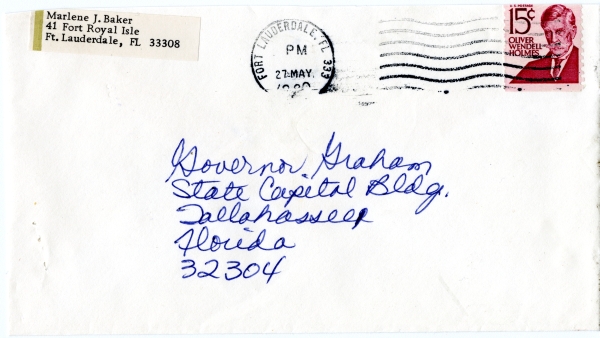 Marlene J. Baker
41 Fort Royal Isle
Ft. Lauderdale, FL 33308
FORT LAUDERDALE, FL 333
PM
27 MAY
15¢
OLIVER
WENDELL
HOLMES
Governor Graham
State Capital Bldg.
Tallahassee
Florida
32304